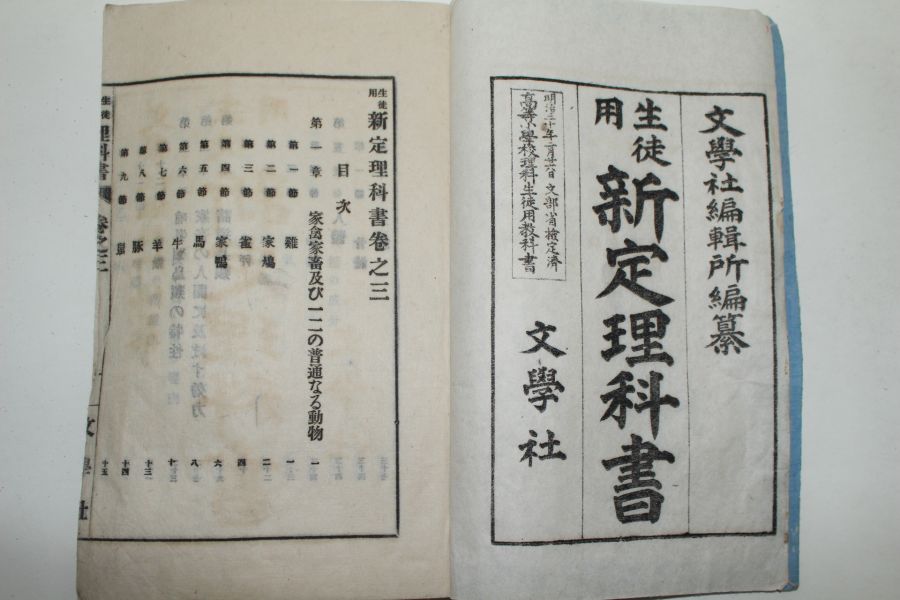 文學社編輯所編纂
生徒用
新定理科書
明治三十年一月廿六日文部省檢定済
高等小學校理科生徒用教科書
文學社
生徒用
新定理科書卷之三
目次
第一章 家禽家畜及び一二の普通なる動物 一
第一節 雞 一
第二節 家鳩 二
第三節 雀 四
第四節 家鴨 六
第五節 馬 八
第六節 牛
第七節 羊
第八節 豚 十三
第九節 十四
十五
生徒
理科書
卷之三
文學社